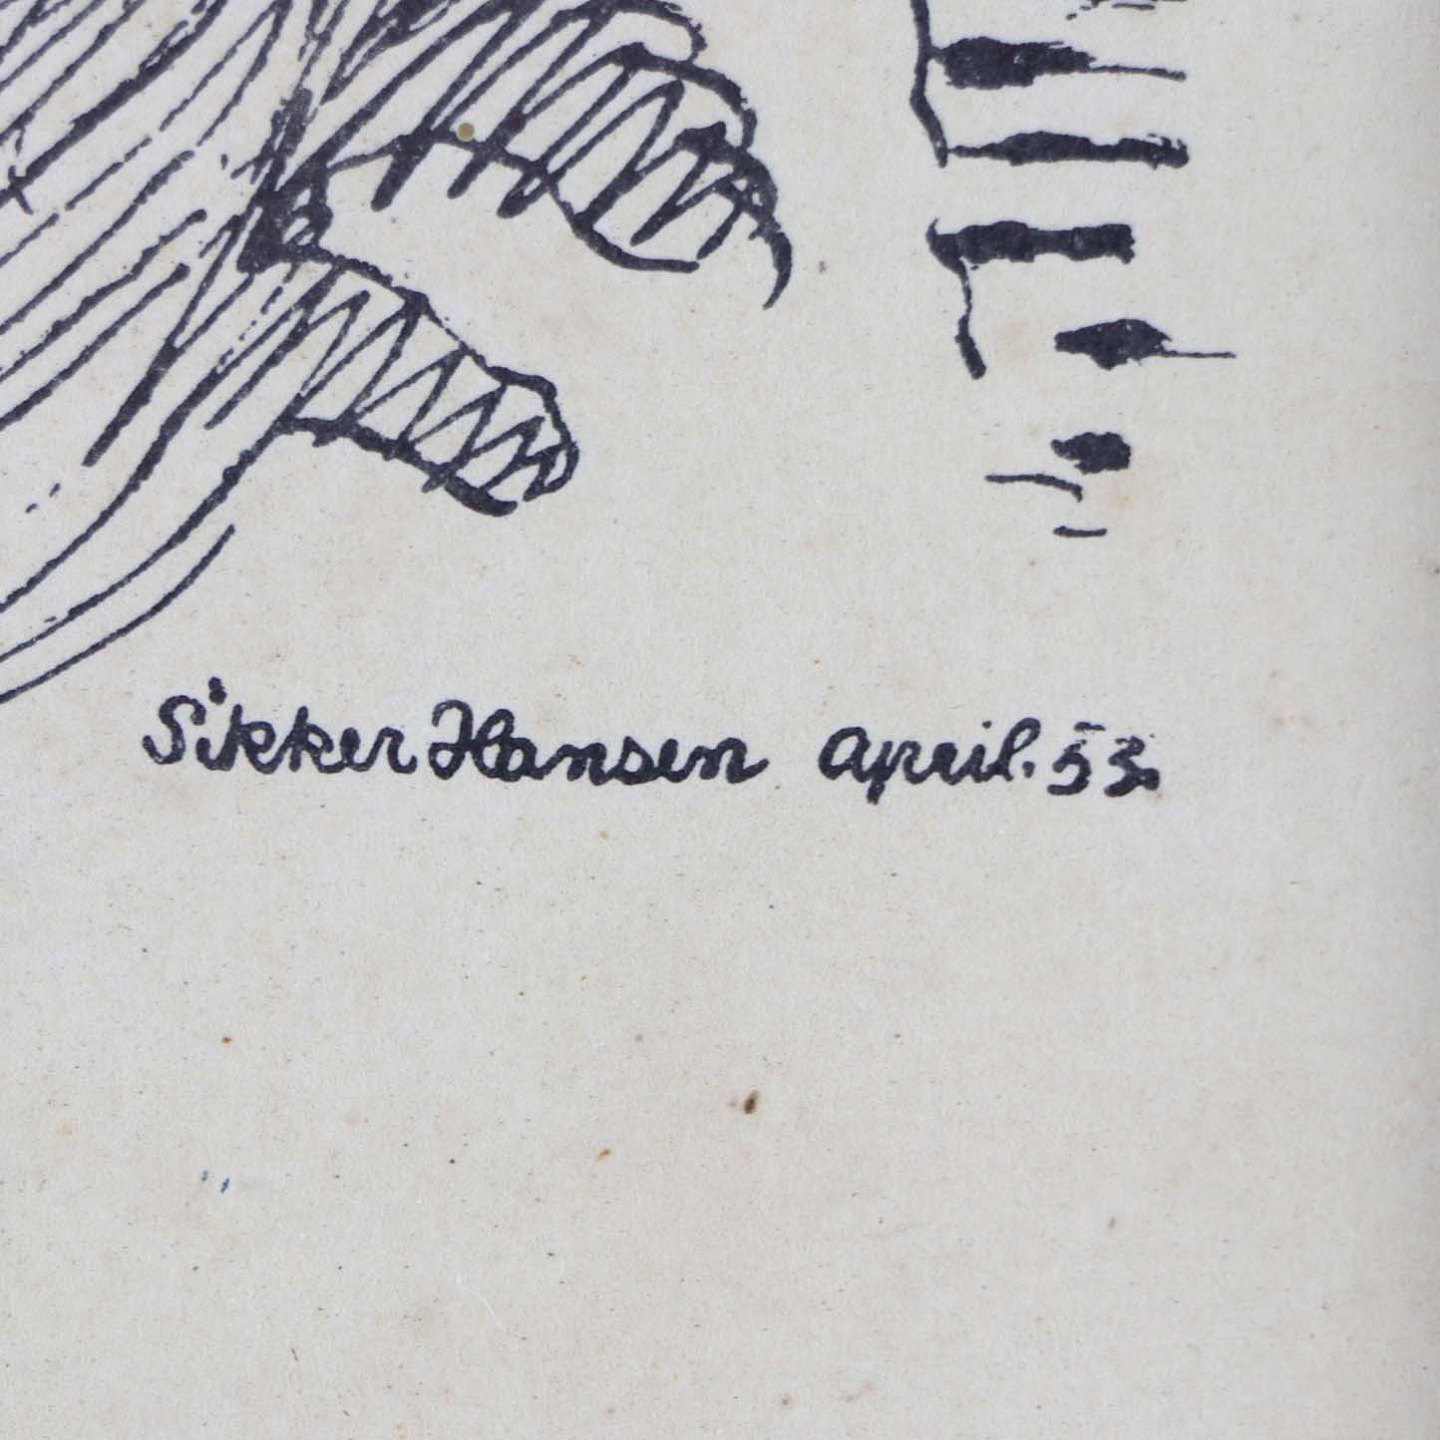 Sikker Hansen April. 53.